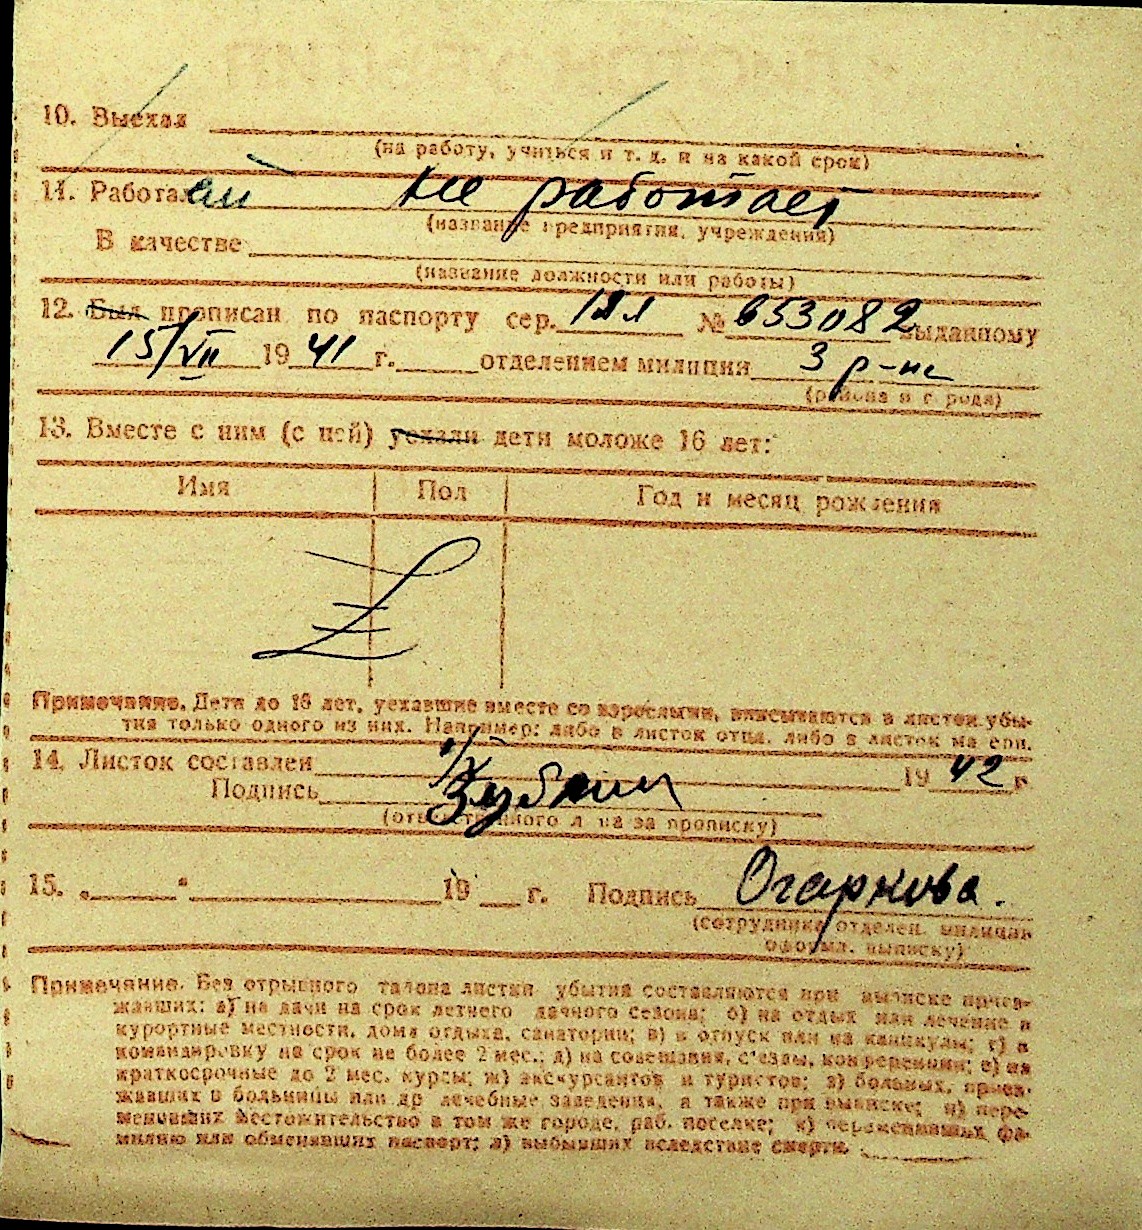 10. Выехал
(на работу, учиться и т. д. и на какой срок)
11. Работает не работает
(название предприятия, учреждения)
В качестве
(название должности или работы)
12. Был прописан по паспорту сер. № 653082 выданному
15/VII 1941 г. отделением милиции 3 р-на
(района и города)
13. Вместе с ним (с ней) уехали дети моложе 16 лет:
Имя Пол Год и месяц рождения
Z
Примечание. Дети до 16 лет, уехавшие вместе со взрослыми, вписываются в листок убы-
тия только одного из них. Например: либо в листок отца, либо в листок матери.
14. Листок составлен 1942 г.
Подпись
(ответственного лица за прописку)
15. „ “ 19 г. Подпись Огаркова.
(сотрудника отделен. милиции
оформл. выписку)
Примечание. Без отрывного талона листки убытия составляются при выписке приез-
жавших: а) на дачи на срок летнего дачного сезона; б) на отдых или лечение в
курортные местности, дома отдыха, санатории; в) в отпуск или на каникулы; г) в
командировку на срок не более 2 мес.; д) на совещания, с'езды, конференции; е) на
краткосрочные до 2 мес. курсы; ж) экскурсантов и туристов; з) больных, приез-
жавших в больницы или др лечебные заведения, а также при выписке; и) пере-
менивших местожительство в том же городе, раб. поселке; к) переменивших фа-
милию или обменявших паспорт; л) выбывших вследствие смерти.